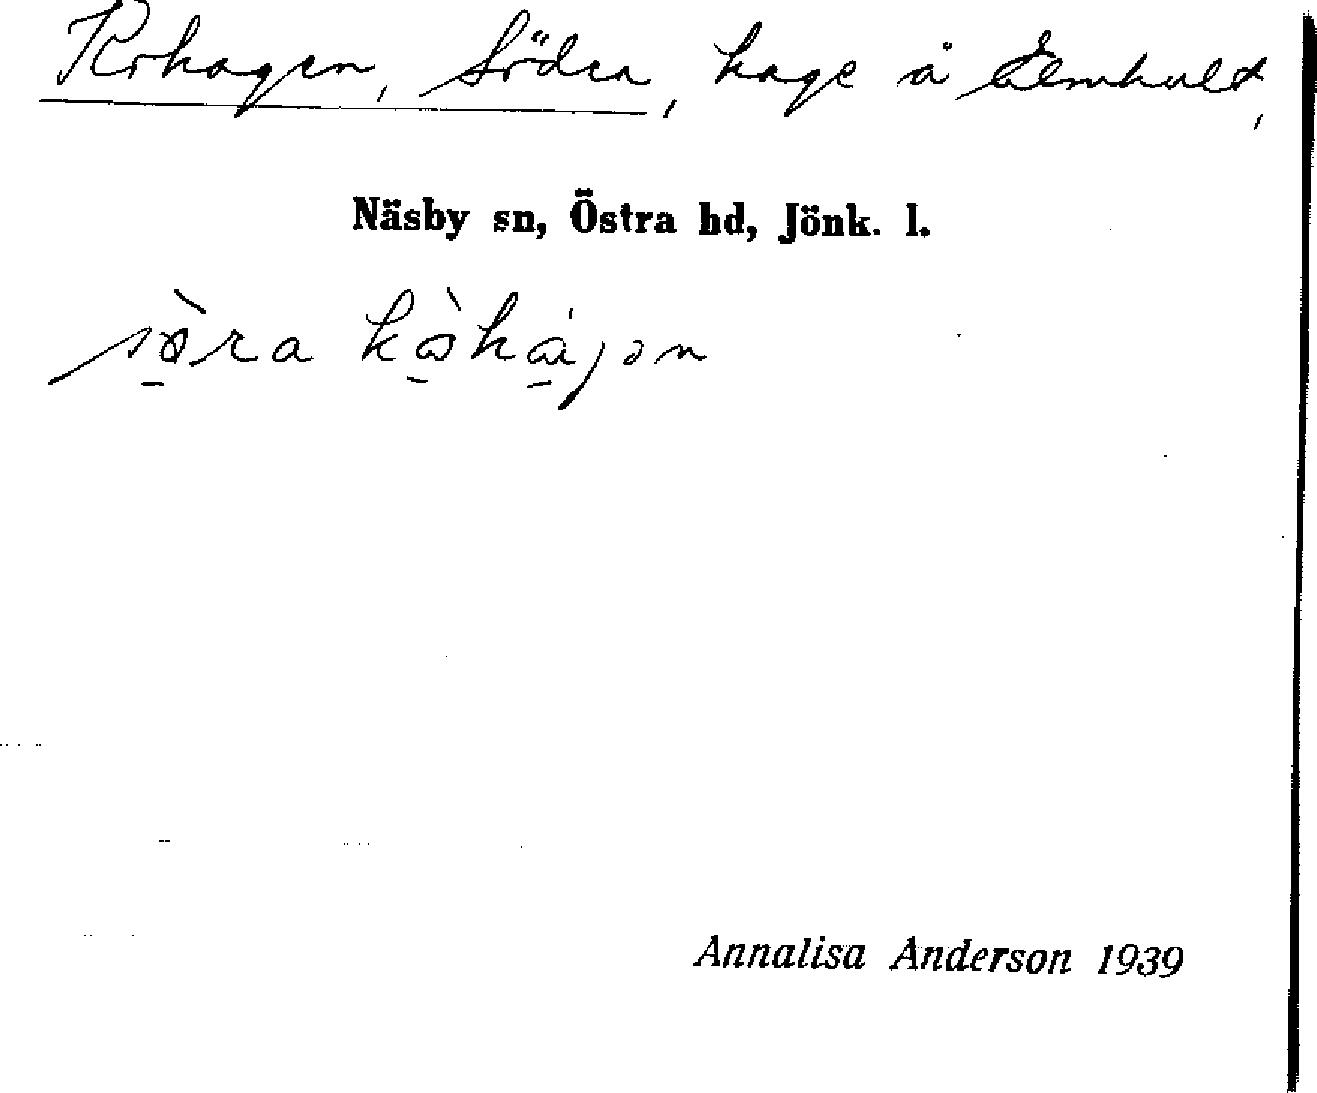 Kohagen, Södra, hage å Elmhult,
Näsby sn, Östra hd, Jönk. l.
Annalisa Anderson 1939